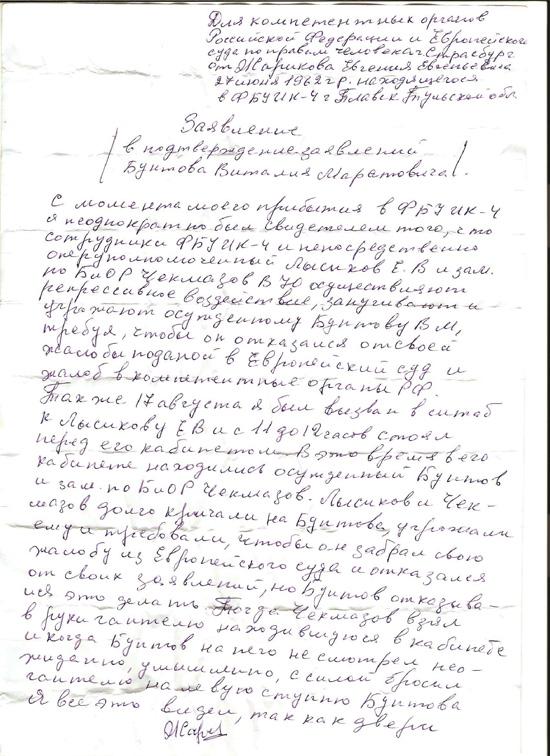 Для компетентных органов
Российской Федерации и Европейского
суда по правам человека г Страсбург
от Жарикова Евгения Евгеньевича
27 июня 1962 г р. находящегося
в ФБУ ИК-4 г Плавск Тульской обл
Заявление
в подтверждение заявлений
Бунтова Виталия Маратовича.
С момента моего прибытия в ФБУ ИК-4
я неоднократно был свидетелем того, что
сотрудники ФБУ ИК-4 и непосредственно
оперуполномоченный Лысиков Е. В и зам.
по БиОР Чекмазов В Ю осуществляют
репрессивное воздействие, запугивают и
угрожают осужденному Бунтову В М,
требуя, чтобы он отказался от своей
жалобы поданой в Европейский суд и
жалоб в компетентные органы РФ.
Так же 17 августа я был вызван в штаб
к Лысикову Е В и с 11 до 12 часов стоял
перед его кабинетом. В это время в его
кабинете находились осужденный Бунтов
и зам. по БиОР Чекмазов. Лысиков и Чек-
мазов долго кричали на Бунтова, угрожали
ему и требовали, чтобы он забрал свою
жалобу из Европейского суда и отказался
от своих заявлений, но Бунтов отказыва-
лся это делать Тогда Чекмазов взял
в руки гантелю находившуюся в кабинете
и когда Бунтов на него не смотрел нео-
жиданно, умышленно, с силой бросил
гантелю на левую ступню Бунтова
Я все это видел, так как двери